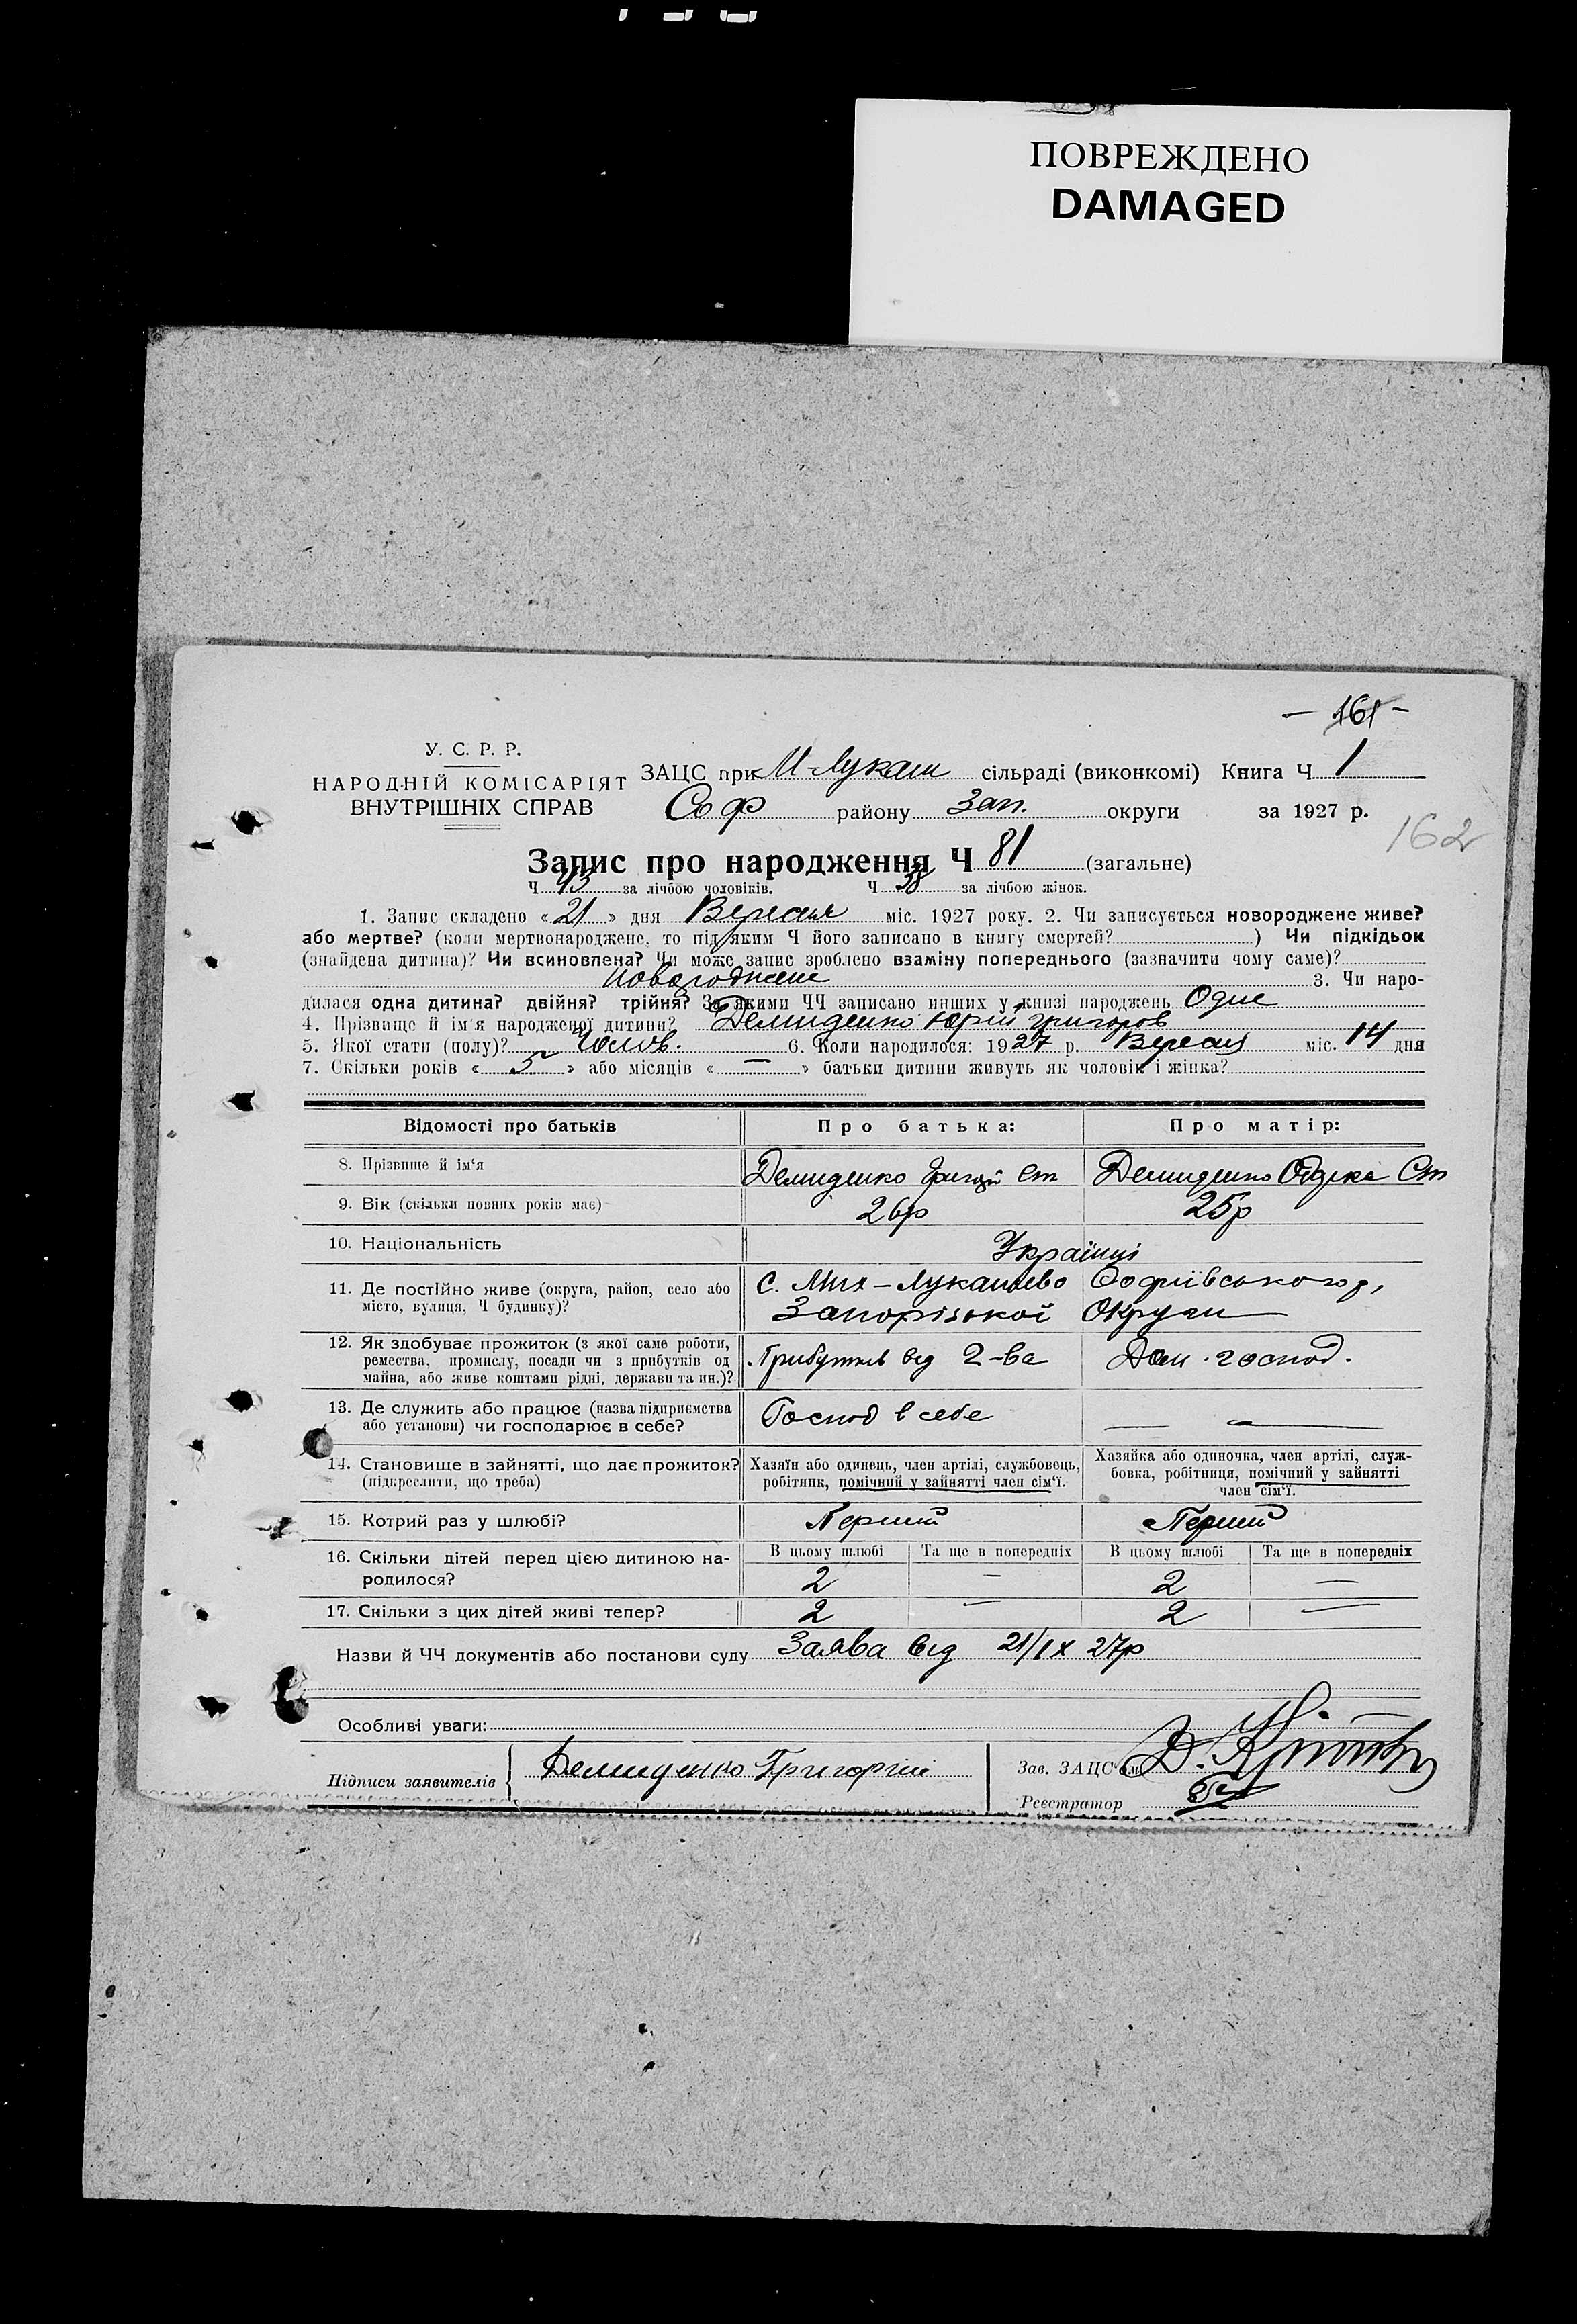 ПОВРЕЖДЕНО
DAMAGED
– 161 –
У. С. Р. Р.
НАРОДНІЙ КОМІСАРІЯТ
ВНУТРІШНІХ СПРАВ
ЗАЦС при М-Лукаш сільраді (виконкомі) Книга Ч 1
Соф району Зап. округи за 1927 р.
162
Запис про народження Ч 81 (загальне)
Ч 43 за лічбою чоловіків. Ч 38 за лічбою жінок.
1. Запис складено « 21 » дня Вересня міс. 1927 року. 2. Чи записується новороджене живе?
або мертве? (коли мертвонароджене, то під яким Ч його записано в книгу смертей? ) Чи підкідьок
(знайдена дитина)? Чи всиновлена? Чи може запис зроблено взаміну попереднього (зазначити чому саме)?
новорожене 3. Чи наро-
дилася одна дитина? двійня? трійня? За якими ЧЧ записано инших у книзі народжень Одне
4. Прізвище й ім'я народженої дитини? Демиденко Юрій Григоров
5. Якої стати (полу)? Чолов. 6. Коли народилося: 1927 р. Вересня міс. 14 дня
7. Скільки років « 5 » або місяців « — » батьки дитини живуть як чоловік і жінка?
Відомості про батьків Про батька: Про матір:
8. Прізвище й ім'я Демиденко Григорій Ст Демиденко Ст
9. Вік (скільки повних років має) 26р 25р
10. Національність Українці
11. Де постійно живе (округа, район, село або місто, вулиця, Ч будинку)? С. Мих-Лукашево Софиївського р,
Запорізької Округи
12. Як здобуває прожиток (з якої саме роботи,
ремества, промислу, посади чи з прибутків од
майна, або живе коштами рідні, держави та ин.)? Прибутків від г-ва Дом. господ.
13. Де служить або працює (назва підприємства
або установи) чи господарює в себе? Господ в себе — —
14. Становище в зайнятті, що дає прожиток?
(підкреслити, що треба)
Хазяїн або одинець, член артілі, службовець,
робітник, помічний у зайнятті член сім'ї.
Хазяйка або одиночка, член артілі, служ-
бовка, робітниця, помічний у зайнятті
член сім'ї.
15. Котрий раз у шлюбі? Перший Перший
16. Скільки дітей перед цією дитиною на-
родилося?
В цьому шлюбі Та ще в попередніх В цьому шлюбі Та ще в попередніх
2 — 2 —
17. Скільки з цих дітей живі тепер? 2 — 2 —
Назви й ЧЧ документів або постанови суду Заява від 21/IX 27р
Особливі уваги:
Підписи заявителів { Демиденко Григорій
Зав. ЗАЦС'ом
Реєстратор